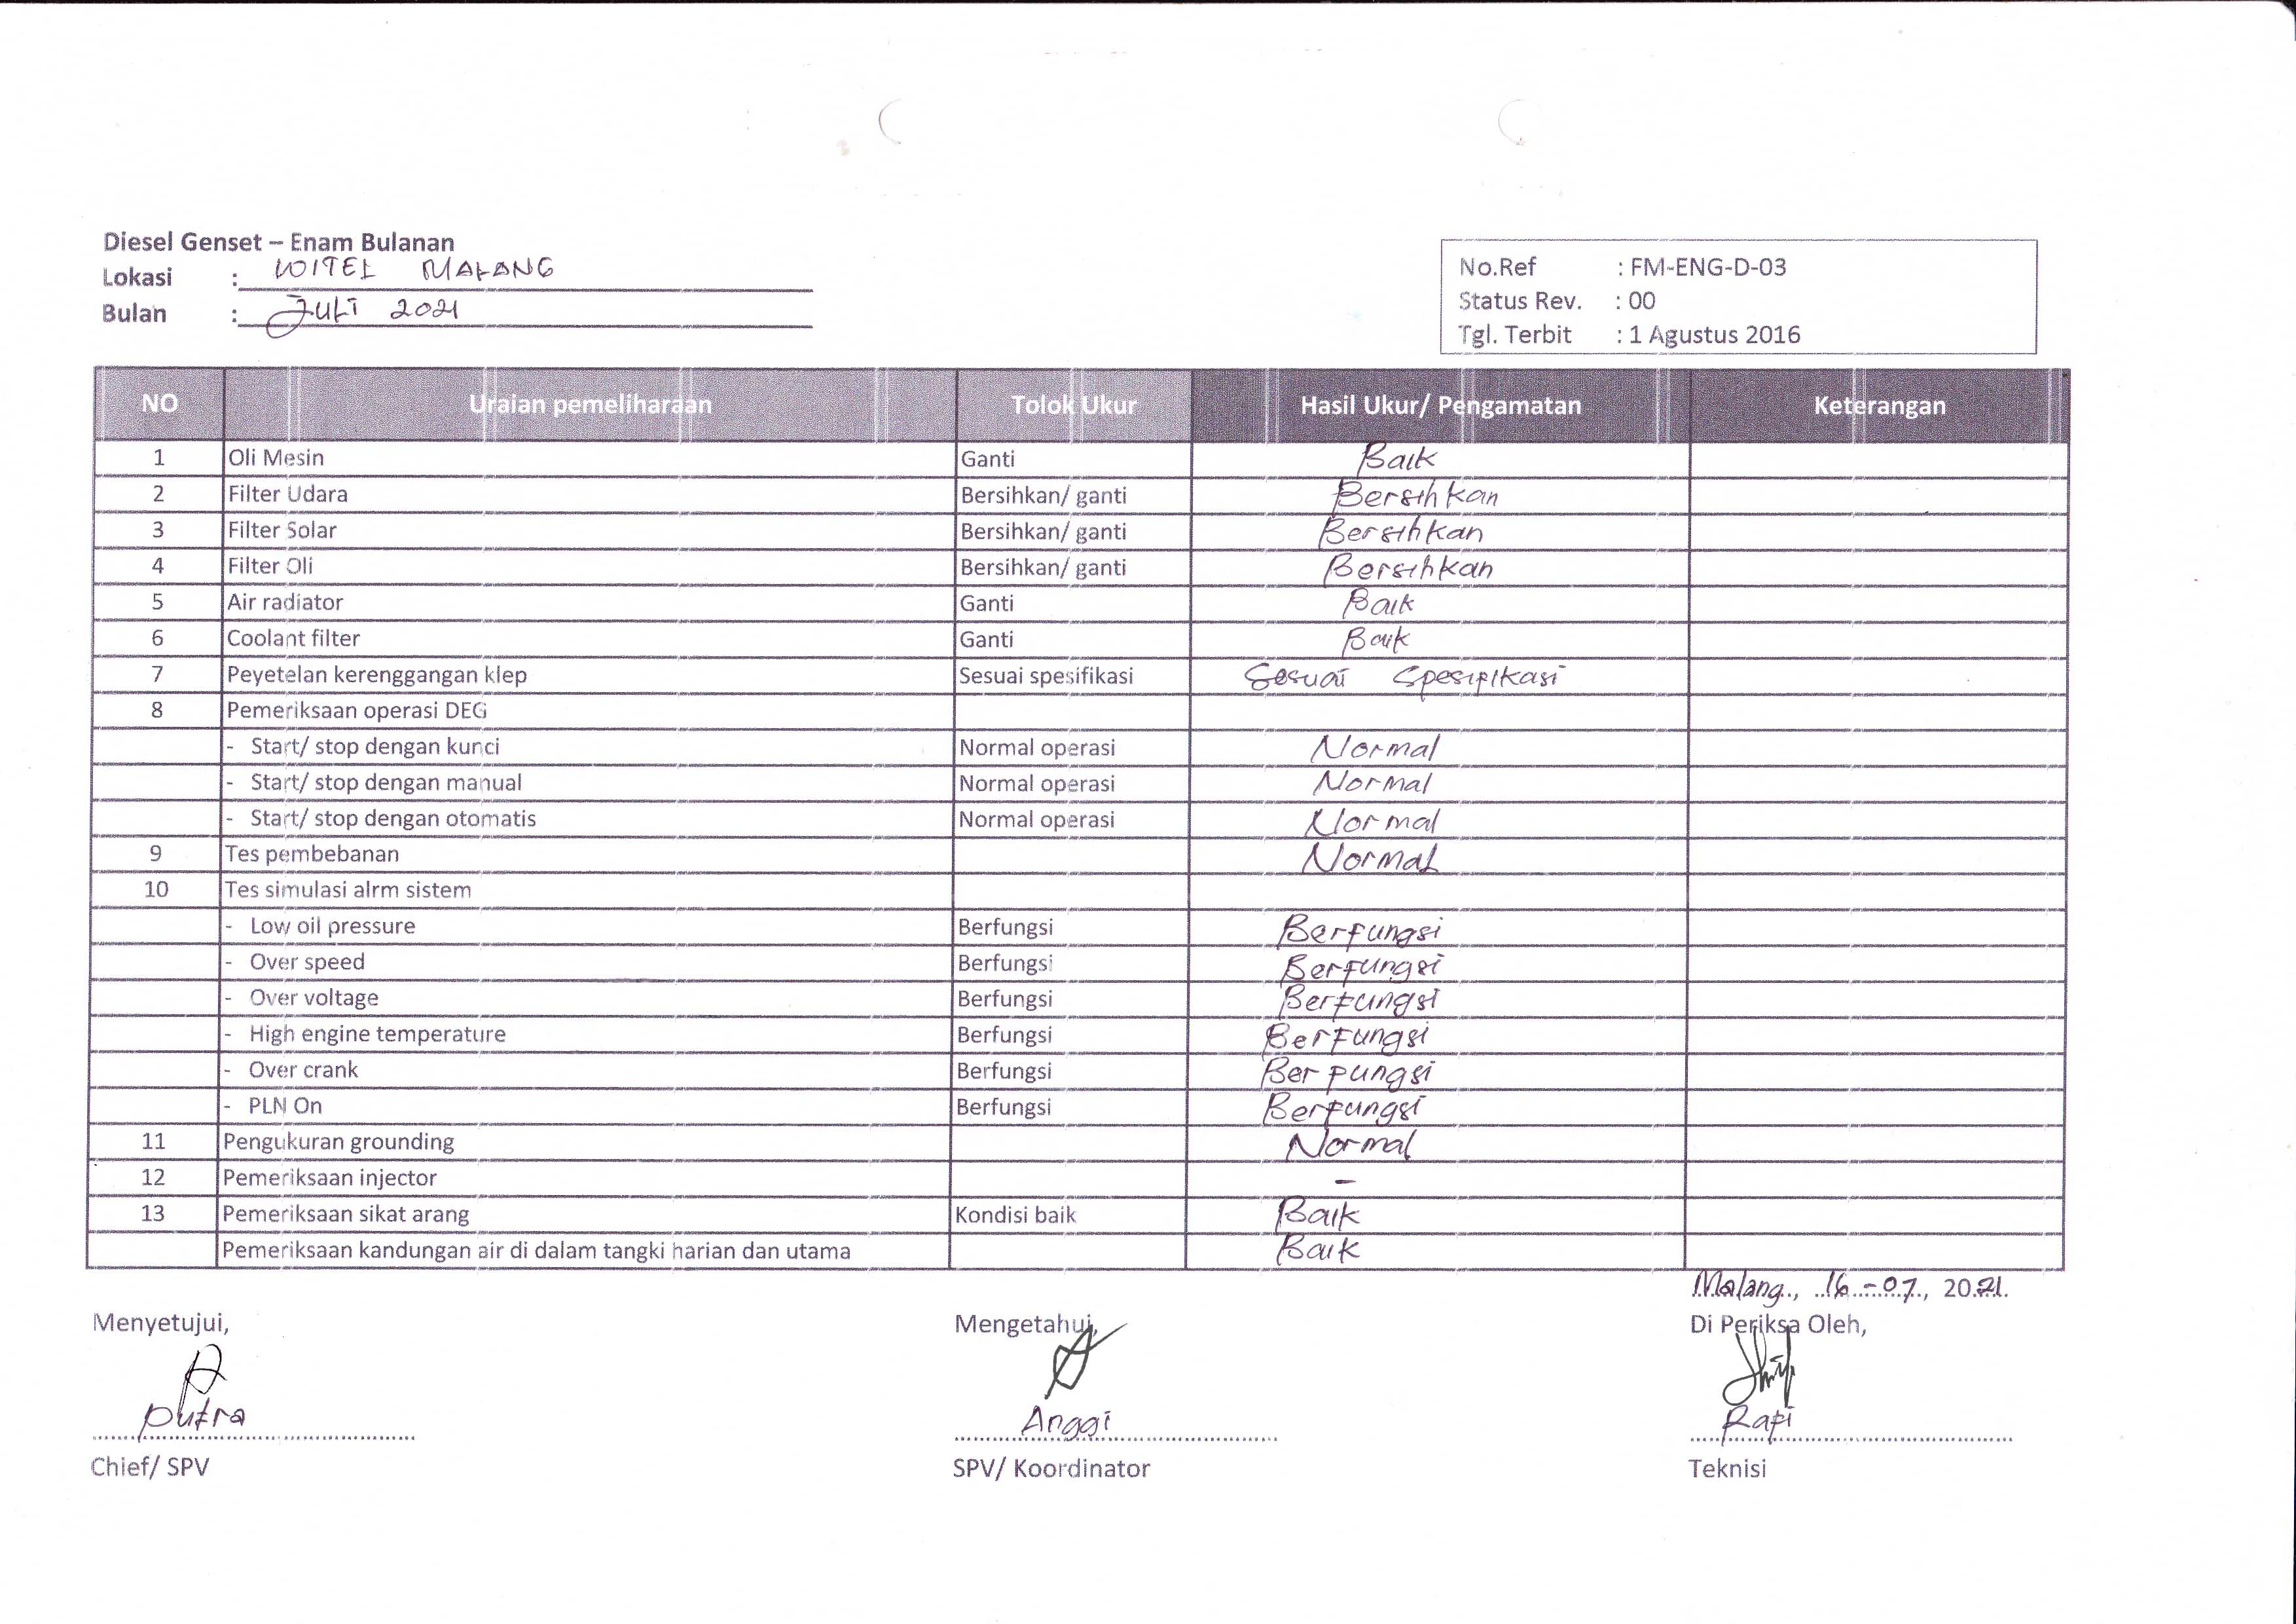 Diesel Genset – Enam Bulanan
Lokasi : WITEL MALANG
Bulan : Juli 2021
No.Ref : FM-ENG-D-03
Status Rev. : 00
Tgl. Terbit : 1 Agustus 2016
NO Uraian pemeliharaan Tolok Ukur Hasil Ukur/ Pengamatan Keterangan
1 Oli Mesin Ganti Baik
2 Filter Udara Bersihkan/ ganti Bersihkan
3 Filter Solar Bersihkan/ ganti Bersihkan
4 Filter Oli Bersihkan/ ganti Bersihkan
5 Air radiator Ganti Baik
6 Coolant filter Ganti Baik
7 Peyetelan kerenggangan klep Sesuai spesifikasi Sesuai Spesifikasi
8 Pemeriksaan operasi DEG
- Start/ stop dengan kunci Normal operasi Normal
- Start/ stop dengan manual Normal operasi Normal
- Start/ stop dengan otomatis Normal operasi Normal
9 Tes pembebanan Normal
10 Tes simulasi alrm sistem
- Low oil pressure Berfungsi Berfungsi
- Over speed Berfungsi Berfungsi
- Over voltage Berfungsi Berfungsi
- High engine temperature Berfungsi Berfungsi
- Over crank Berfungsi Berfungsi
- PLN On Berfungsi Berfungsi
11 Pengukuran grounding Normal
12 Pemeriksaan injector -
13 Pemeriksaan sikat arang Kondisi baik Baik
Pemeriksaan kandungan air di dalam tangki harian dan utama Baik
Malang, 16-07, 2021.
Menyetujui, Mengetahui, Di Periksa Oleh,
Putra Anggi Rafi
Chief/ SPV SPV/ Koordinator Teknisi